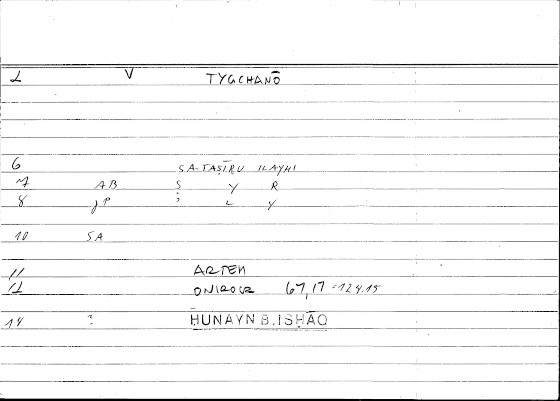 1 V TYGCHANŌ
6 SA-TAṢĪRU ILAYHI
7 AB Ṣ Y R
8 JP ʾ L Y
10 SA
11 ARTEM
12 ONIROCR 67,17 -124.15
14 : ḤUNAYN B. ISḤĀQ